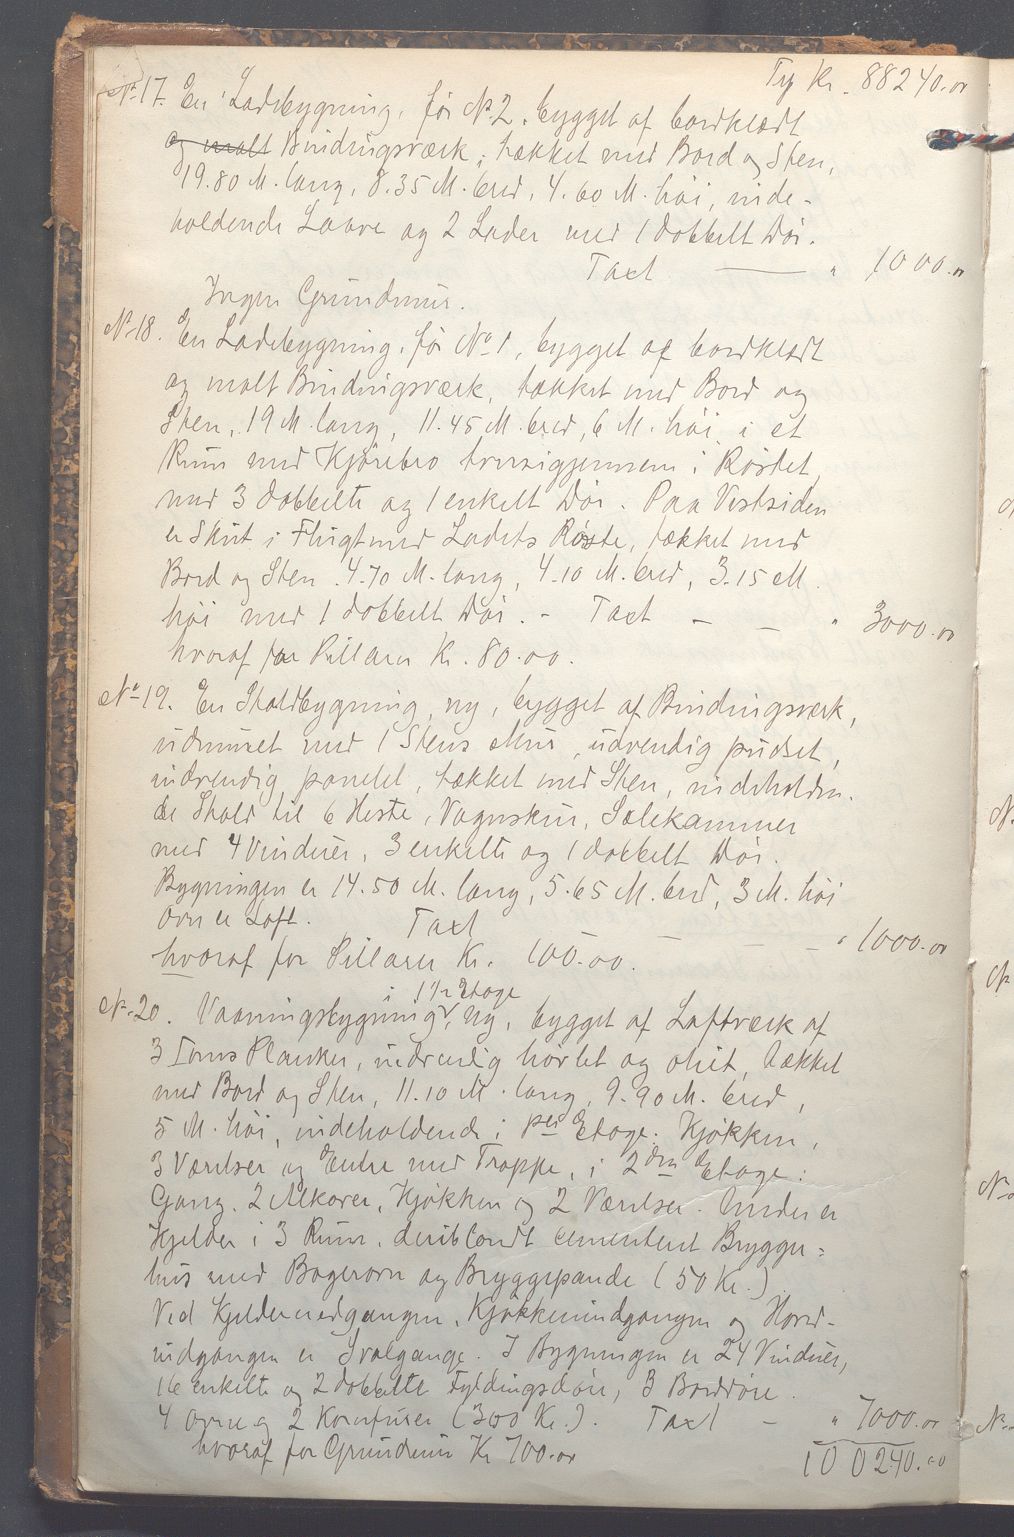 Tp Kr. 88240.00
No 17. En Ladebygning, før No 2, bygget af bordklædt
og malt Bindingsværk, tækket med Bord og Sten,
19.80 M. lang, 8.35 M. bred, 4.60 M. høi, inde-
holdende Laave og 2 Lader med 1 dobbelt Dør.
Taxt — " 1000.00
Ingen Grundmur.
No 18. En Ladebygning, før No 1, bygget af bordklædt
og malt Bindingsværk, tækket med Bord og
Sten, 19 M. lang, 11.45 M. bred, 6 M. høi, i et
Rum med Kjørebro tversigjennem i Røstet,
med 3 dobbelte og 1 enkelt Dør. Paa Vestsiden
er Skut i Flugt med Ladets Røste, tækket med
Bord og Sten. 4.70 M. lang, 4.10 M. bred, 3.15 M.
høi med 1 dobbelt Dør. - Taxt — — " 3000.00
hvoraf for Pillarer Kr. 80.00.
No 19. En Staldbygning, ny, bygget af Bindingsværk,
udmuret med 1 Stens Mur, udvendig pudset,
indvendig panelet, tækket med Sten, indeholden-
de Stald til 6 Heste, Vognskur, Sælekammer
med 4 Vinduer, 3 enkelte og 1 dobbelt Dør.
Bygningen er 14.50 M. lang, 5.65 M. bred, 3 M. høi
Oven er Loft. Taxt — — — — " 1000.00
hvoraf for Pillarer Kr. 100.00.
i 1 1/2 Etage
No 20. Vaaningsbygning, ny, bygget af Laftværk af
3 Toms Planker, indvendig høvlet og oliet, tækket
med Bord og Sten, 11.10 M. lang, 9.90 M. bred,
5 M. høi, indeholdende i Etage: Kjøkken,
3 Værelser og Entre med Trappe, i 2den Etage:
Gang, 2 Alkover, Kjøkken og 2 Værelser. Under er
Kjelder i 3 Rum, deriblandt cementeret Brygger=
hus med Bagerovn og Bryggepande (50 Kr.)
Ved Kjeldernedgangen, Kjøkkenindgangen og Hoved-
indgangen er Svalgange. I Bygningen er 24 Vinduer,
16 enkelte og 2 dobbelte Fyldingsdøre, 3 Borddøre.
4 Ovne og 2 Komfurer (300 Kr.). Taxt — " 7000.00
hvoraf for Grundmur Kr 700.00
100240.00